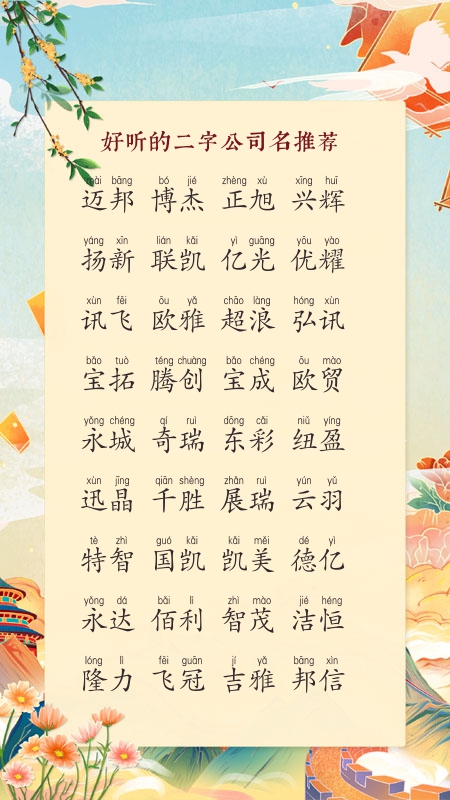 好听的二字公司名推荐
mài bāng bó jié zhèng xù xīng huī
迈邦 博杰 正旭 兴辉
yáng xīn lián kǎi yì guāng yōu yào
扬新 联凯 亿光 优耀
xùn fēi ōu yǎ chāo làng hóng xùn
讯飞 欧雅 超浪 弘讯
bǎo tuò téng chuàng bǎo chéng ōu mào
宝拓 腾创 宝成 欧贸
yǒng chéng qí ruì dōng cǎi niǔ yíng
永城 奇瑞 东彩 纽盈
xùn jīng qiān shèng zhǎn ruì yún yǔ
迅晶 千胜 展瑞 云羽
tè zhì guó kǎi kǎi měi dé yì
特智 国凯 凯美 德亿
yǒng dá bǎi lì zhì mào jié héng
永达 佰利 智茂 洁恒
lóng lì fēi guān jí yǎ bāng xìn
隆力 飞冠 吉雅 邦信